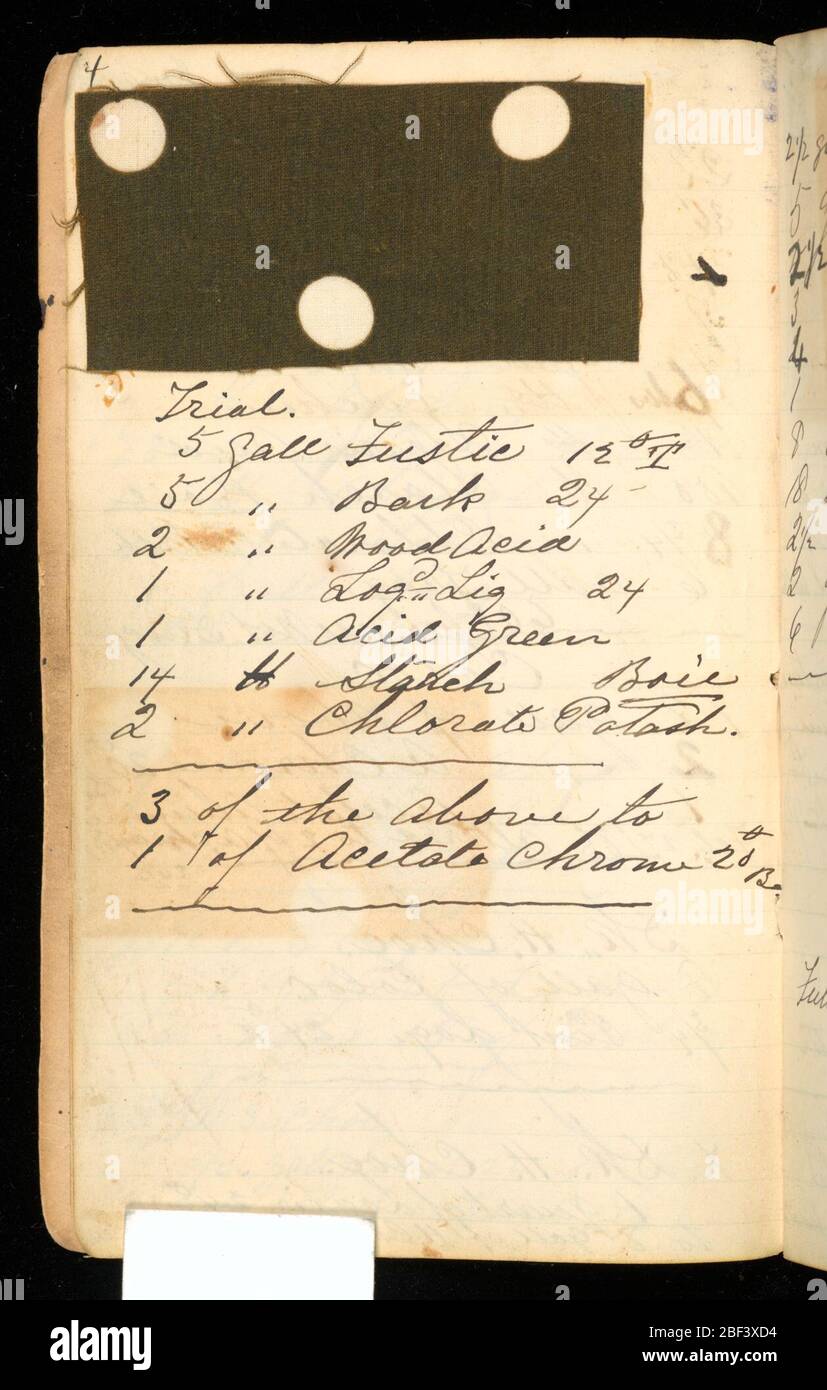 4
Trial.
5 Gall Fustic 12° T
5 " Bark 24
2 " Wood Acid
1 " Log.d Liq 24
1 " Acid Green
14 lb Starch Boil
2 " Chlorate Potash.
3 of the above to
1 of Acetate Chrome 20° Be
2 1/2
5
2 1/2
3
4
1
8
8
2 1/2
2
6
alamy
Image ID: 2BF3XD4
www.alamy.com